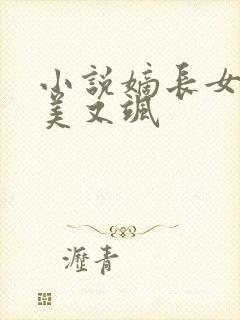 小說嫡長女
美又颯
瀝青